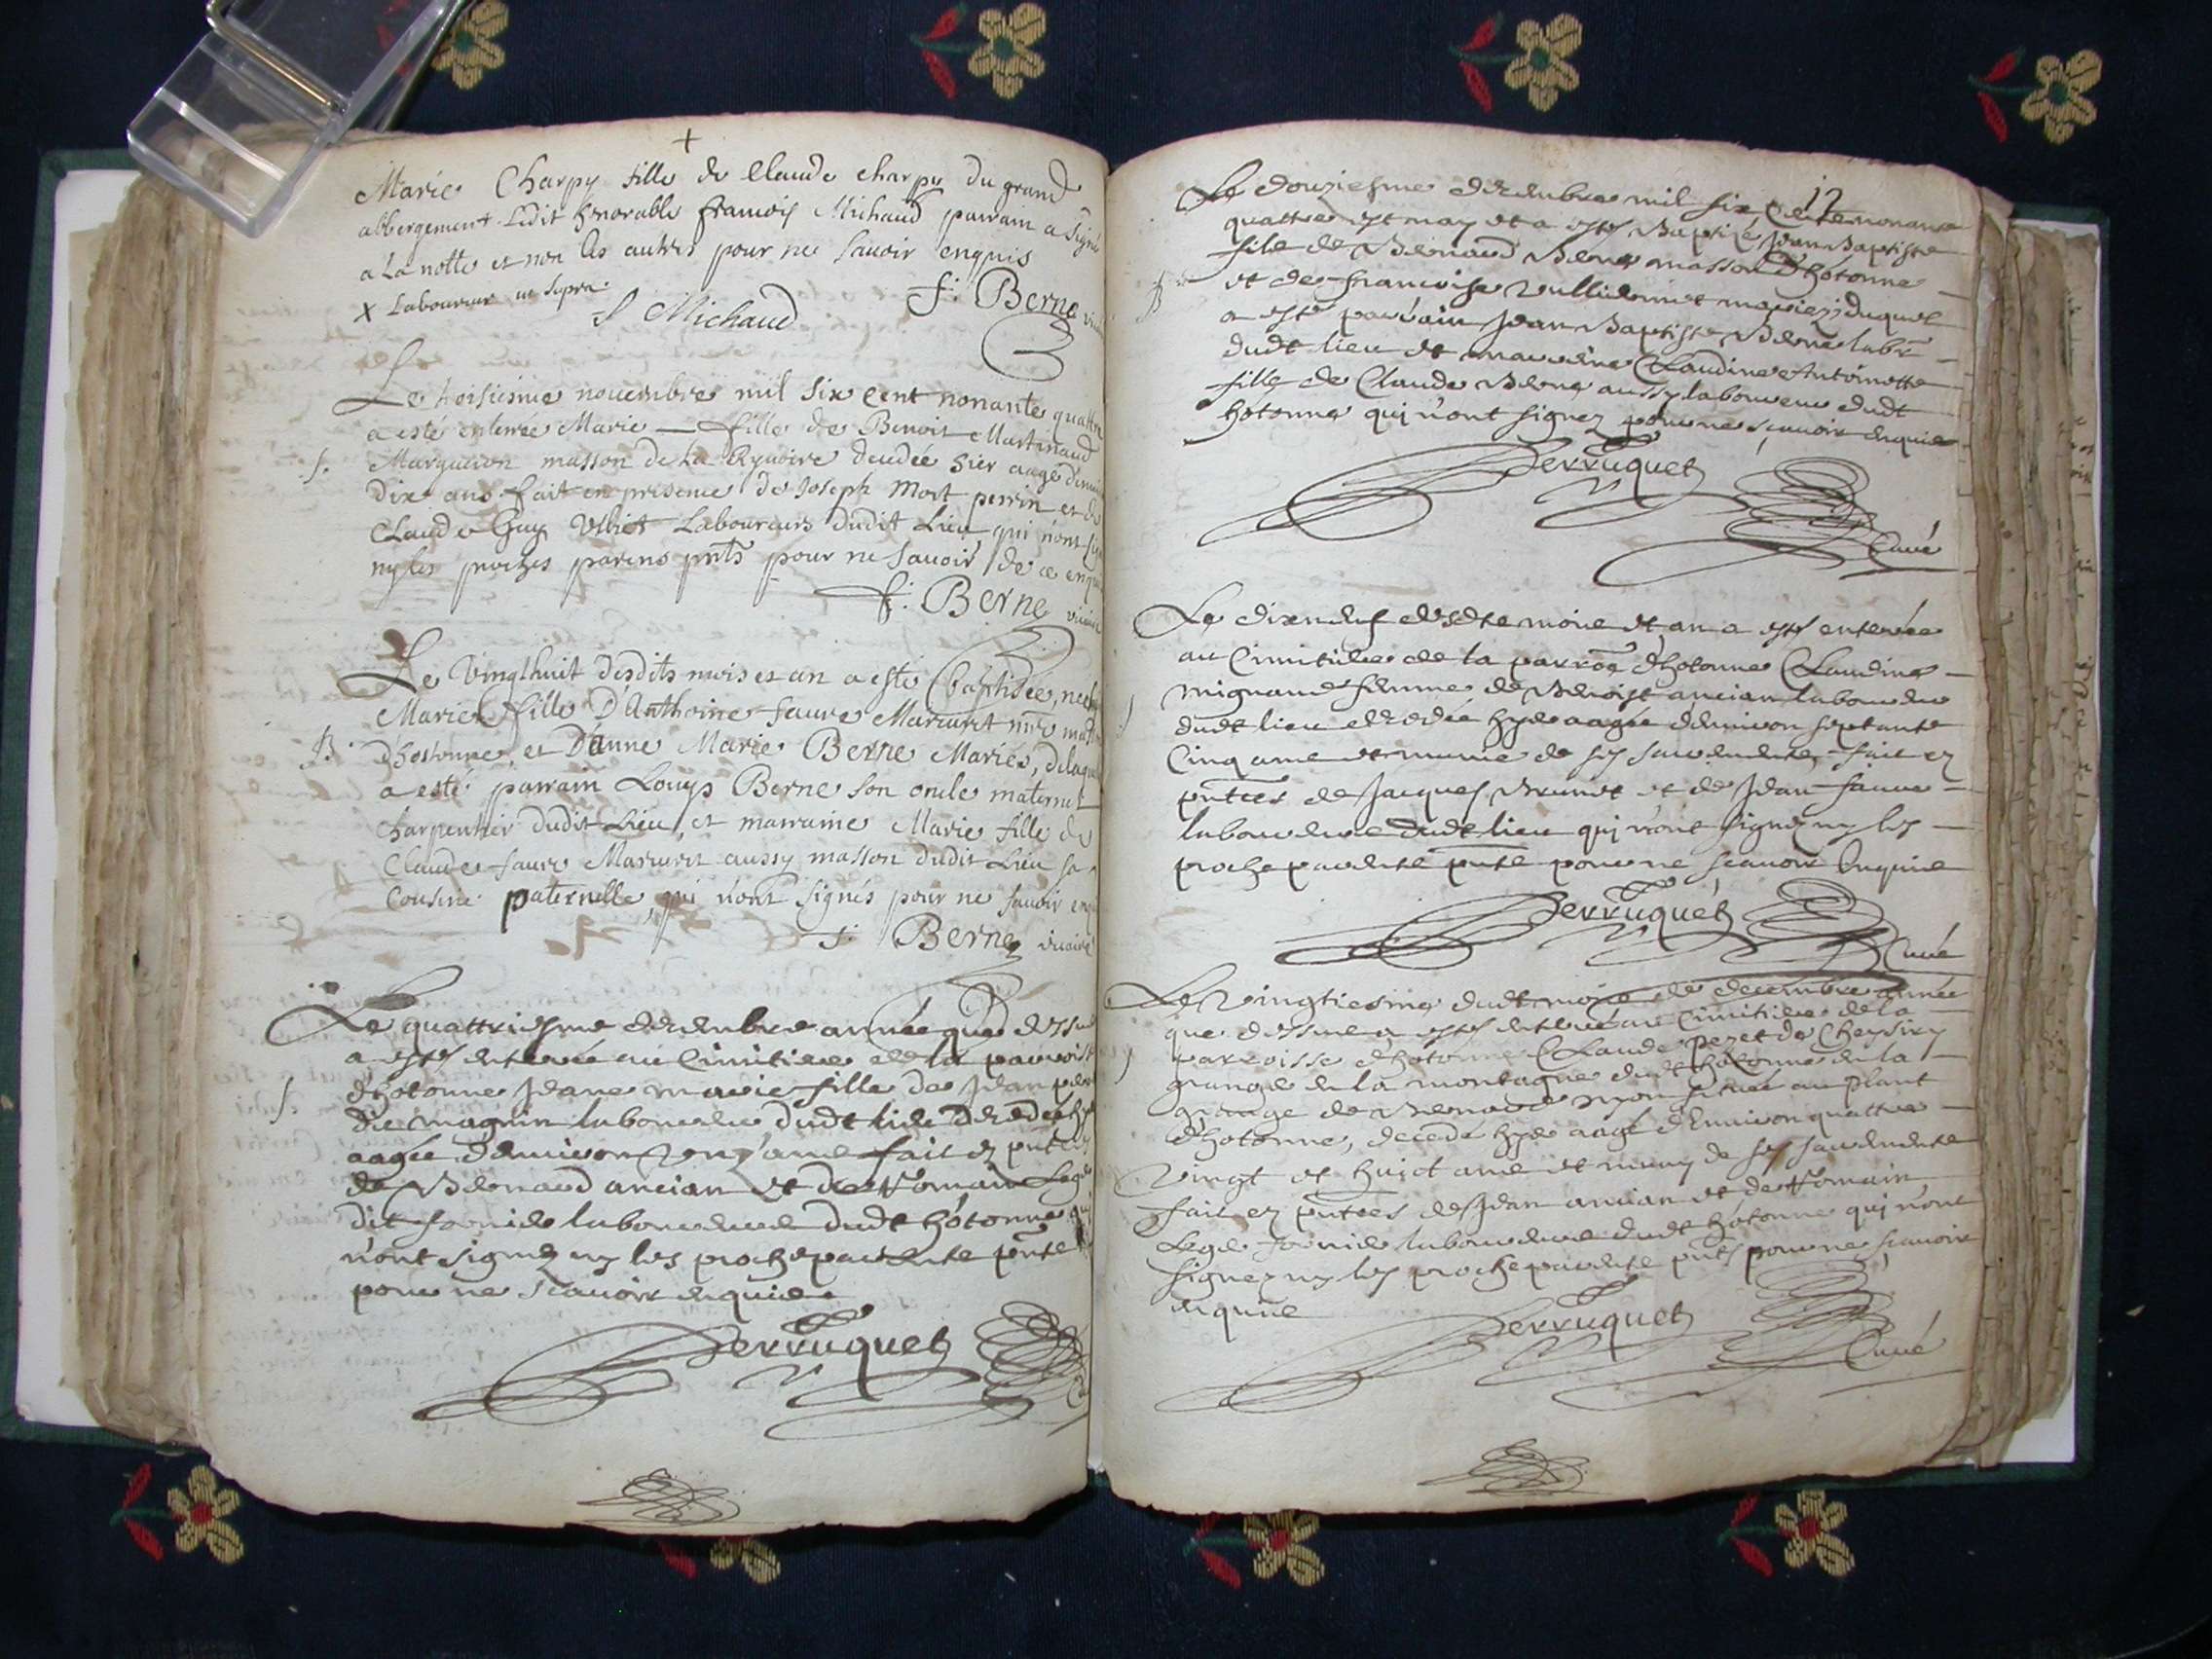 +
Marie Charpy fille de Claude charpy du grand
abbergement Ledit honorable françois Michaud parrain a signé
a La notte et non les autres pour ne sauoir enquis
x Laboureur ut supra.
f Michaud f. Berne
Le troisiesme nouembre mil six Cent nonante quattre
a esté enterrée Marie fille de Benoit Martinaud
S.
masson de La deudée hier aagé
Dix ans fait en presence de Joseph Mort perrin et de
Claude Guy Ulliet Laboureurs dudit Lieu qui n'ont
ny les proches parens pnts pour ne sauoir de ce
f. Berne
Le vingthuit desdits mois et an a esté Baptisée,
Marie fille D'Anthoine faure masson
B.
d'hostonne, et Danne Marie Berne Mariés,
a esté parrain Louys Berne son oncle maternel
charpentier dudit Lieu, et marraine Marie fille de
Claude faure aussy masson dudit Lieu sa
Cousine paternelle, qui n'ont signés pour ne sauoir
f. Berne vicaire
Le quattriesme decembre année que dessus
a esté enterrée au Cimitiere de la parroisse
S.
d'hotonne Jeane marie fille de Jean
dit magnin laboureur dudt lieu decedée
aagée d'enuiron ans fait en
de Bernard ancian et de Romain
dit fornier laboureurs dudt hotonne qui
n'ont signez ny les proche parents pnts
pour ne scauoir enquis
Perruquet
12
Le douziesme decembre mil six Cents nonante
quattre est nay et a esté Baptizé Jean Baptiste
fils de Bernard Berne masson d'hotonne
B
et de francoise mariez; duquel
a esté parrain Jean Baptiste Berne labr
dudt lieu et marraine Claudine Antoinette
fille de Claude Berne aussy laboureur dudt
hotonne qui n'ont signez pour ne scauoir enquis
Perruquet
Curé
Le dixneuf desdts mois et an a esté enterrée
au Cimitiere de la d'hotonne Claudine
mignand femme de Benoist ancian laboureur
dudt lieu decedée hyer aagée d'enuiron septante
Cinq ans et munie de ses sacrements, fait en
pntces de Jacques Brunet et de Jean faure
laboureurs dudt lieu qui n'ont signez ny les
proche parents pnts pour ne scauoir enquis
Perruquet
Curé
Le vingtiesme dudt mois de decembre année
que dessus a esté enterré au Cimitiere de la
parroisse d'hotonne Claude
grange de la montagne dudt hotonne de la
grange de Bernard située au plant
d'hotonne, decedé hyer aagé d'enuiron quattre
vingt et huict ans et muny de ses sacrements
fait en pntces de Jean ancian et de Romain
fornier laboureurs dudt hotonne qui n'ont
signez ny les proche parents pnts pour ne scauoir
enquis
Perruquet
Curé